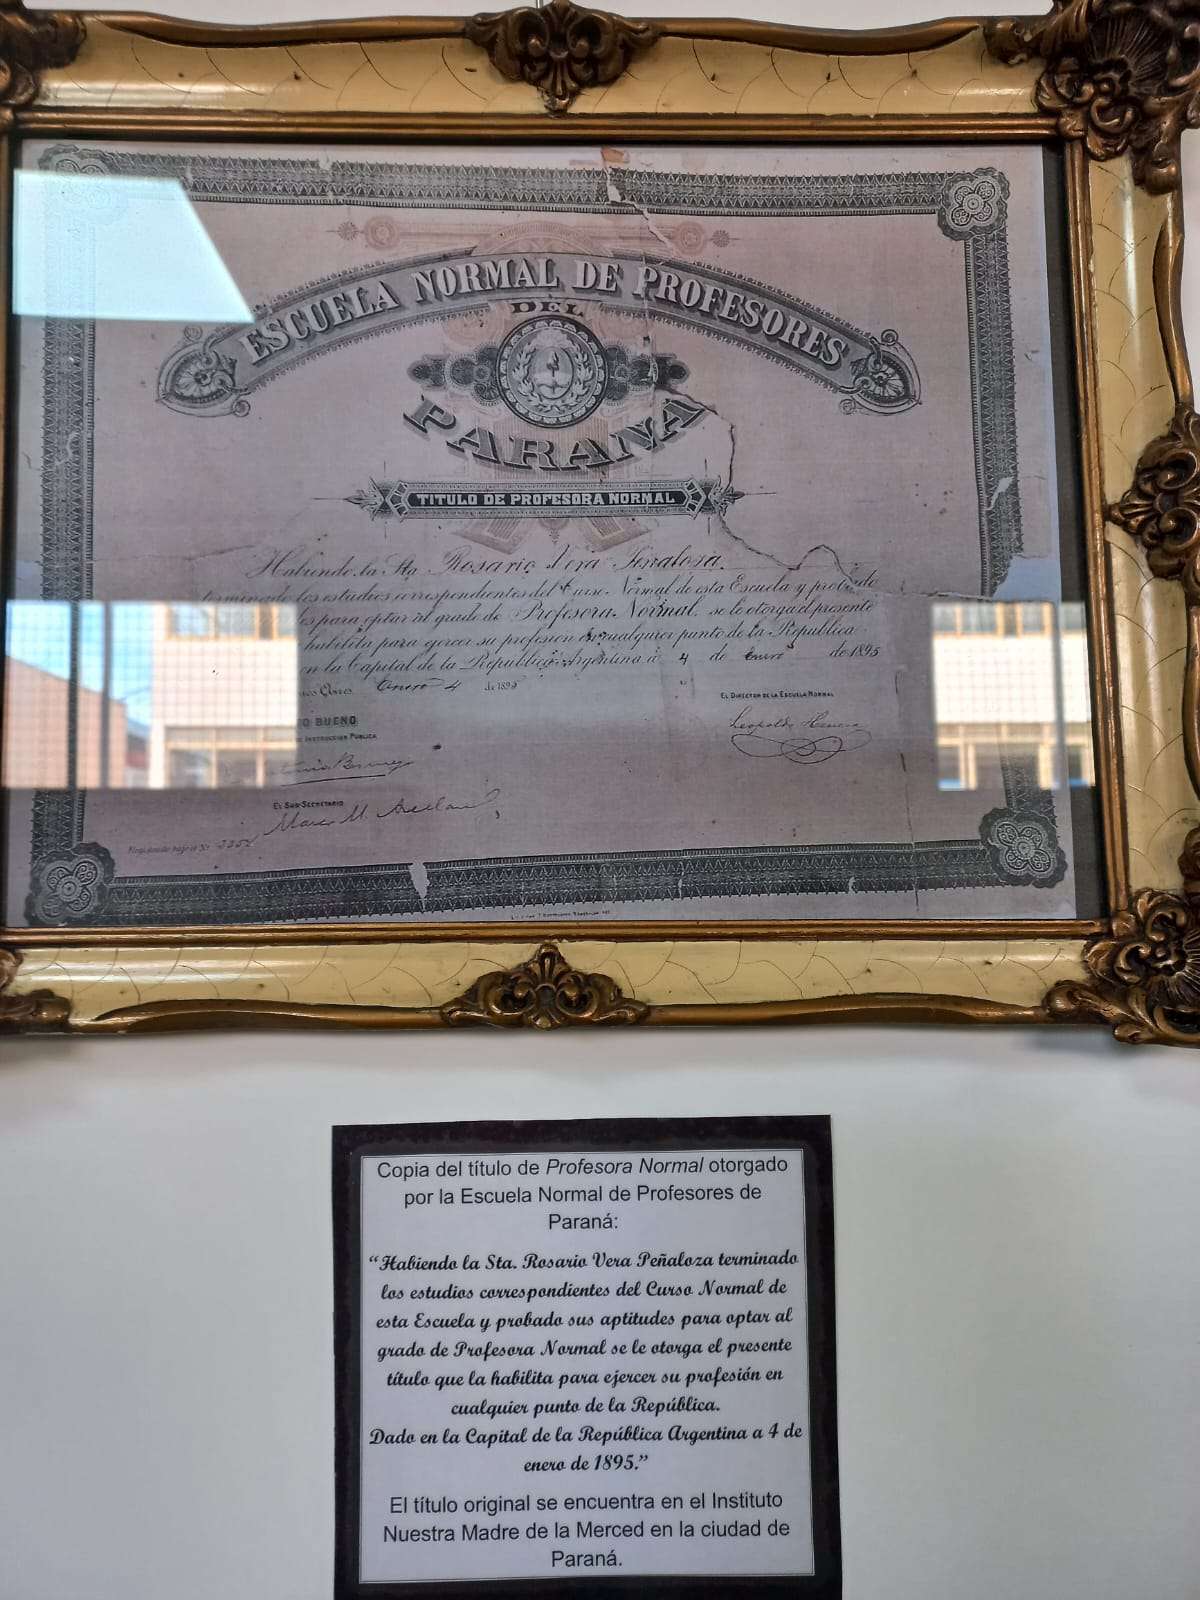 ESCUELA NORMAL DE PROFESORES
DEL
PARANA
TITULO DE PROFESORA NORMAL
Habiendo la Sta Rosario Vera Peñaloza
terminado los estudios correspondientes del Curso Normal de esta Escuela y probado
para optar al grado de Profesora Normal se le otorga el presente
habilita para ejercer su profesion en cualquier punto de la Republica
en la Capital de la Republica Argentina a 4 de Enero de 1895
Enero 4 de 1895
EL DIRECTOR DE LA ESCUELA NORMAL
BUENO
Leopoldo Herrera
DE INSTRUCCION PUBLICA
EL SUB-SECRETARIO
Copia del título de Profesora Normal otorgado
por la Escuela Normal de Profesores de
Paraná:
“Habiendo la Sta. Rosario Vera Peñaloza terminado
los estudios correspondientes del Curso Normal de
esta Escuela y probado sus aptitudes para optar al
grado de Profesora Normal se le otorga el presente
título que la habilita para ejercer su profesión en
cualquier punto de la República.
Dado en la Capital de la República Argentina a 4 de
enero de 1895.”
El título original se encuentra en el Instituto
Nuestra Madre de la Merced en la ciudad de
Paraná.